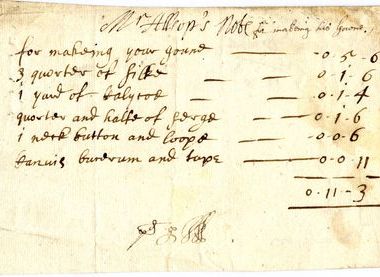 Mr Allop's Note for making his Gowne.
for makeing your goune 0-5-6
3 quorter of silke — — 0-1-6
1 yard of Calycoe — — 0-1-4
quorter and halfe of serge — 0-1-6
1 neck button and loope — 0-0-6
Canvis buckrum and tape — 0-0-11
0-11-3
pd